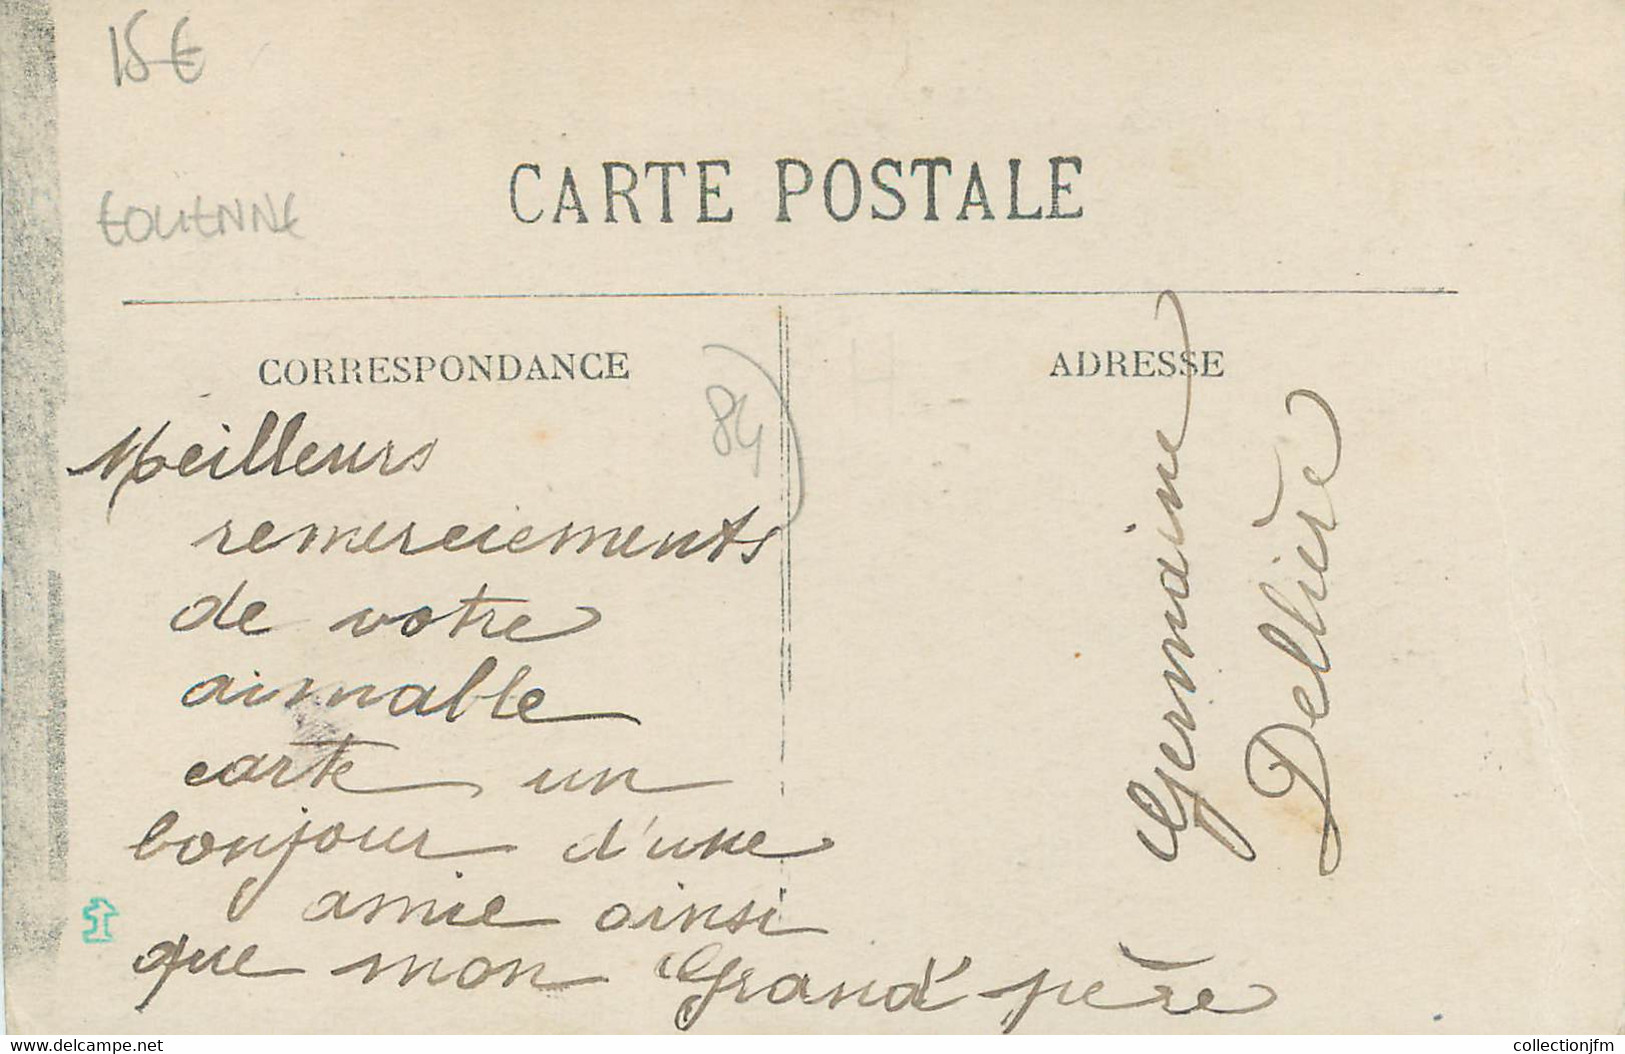 15€
EOLIENNE
CARTE POSTALE
CORRESPONDANCE
ADRESSE
84
Meilleurs
remerciements
de votre
aimable
carte un
bonjour d'une
amie ainsi
que mon Grand' père
Germaine
Dellière
delcampe.net
collectionjfm